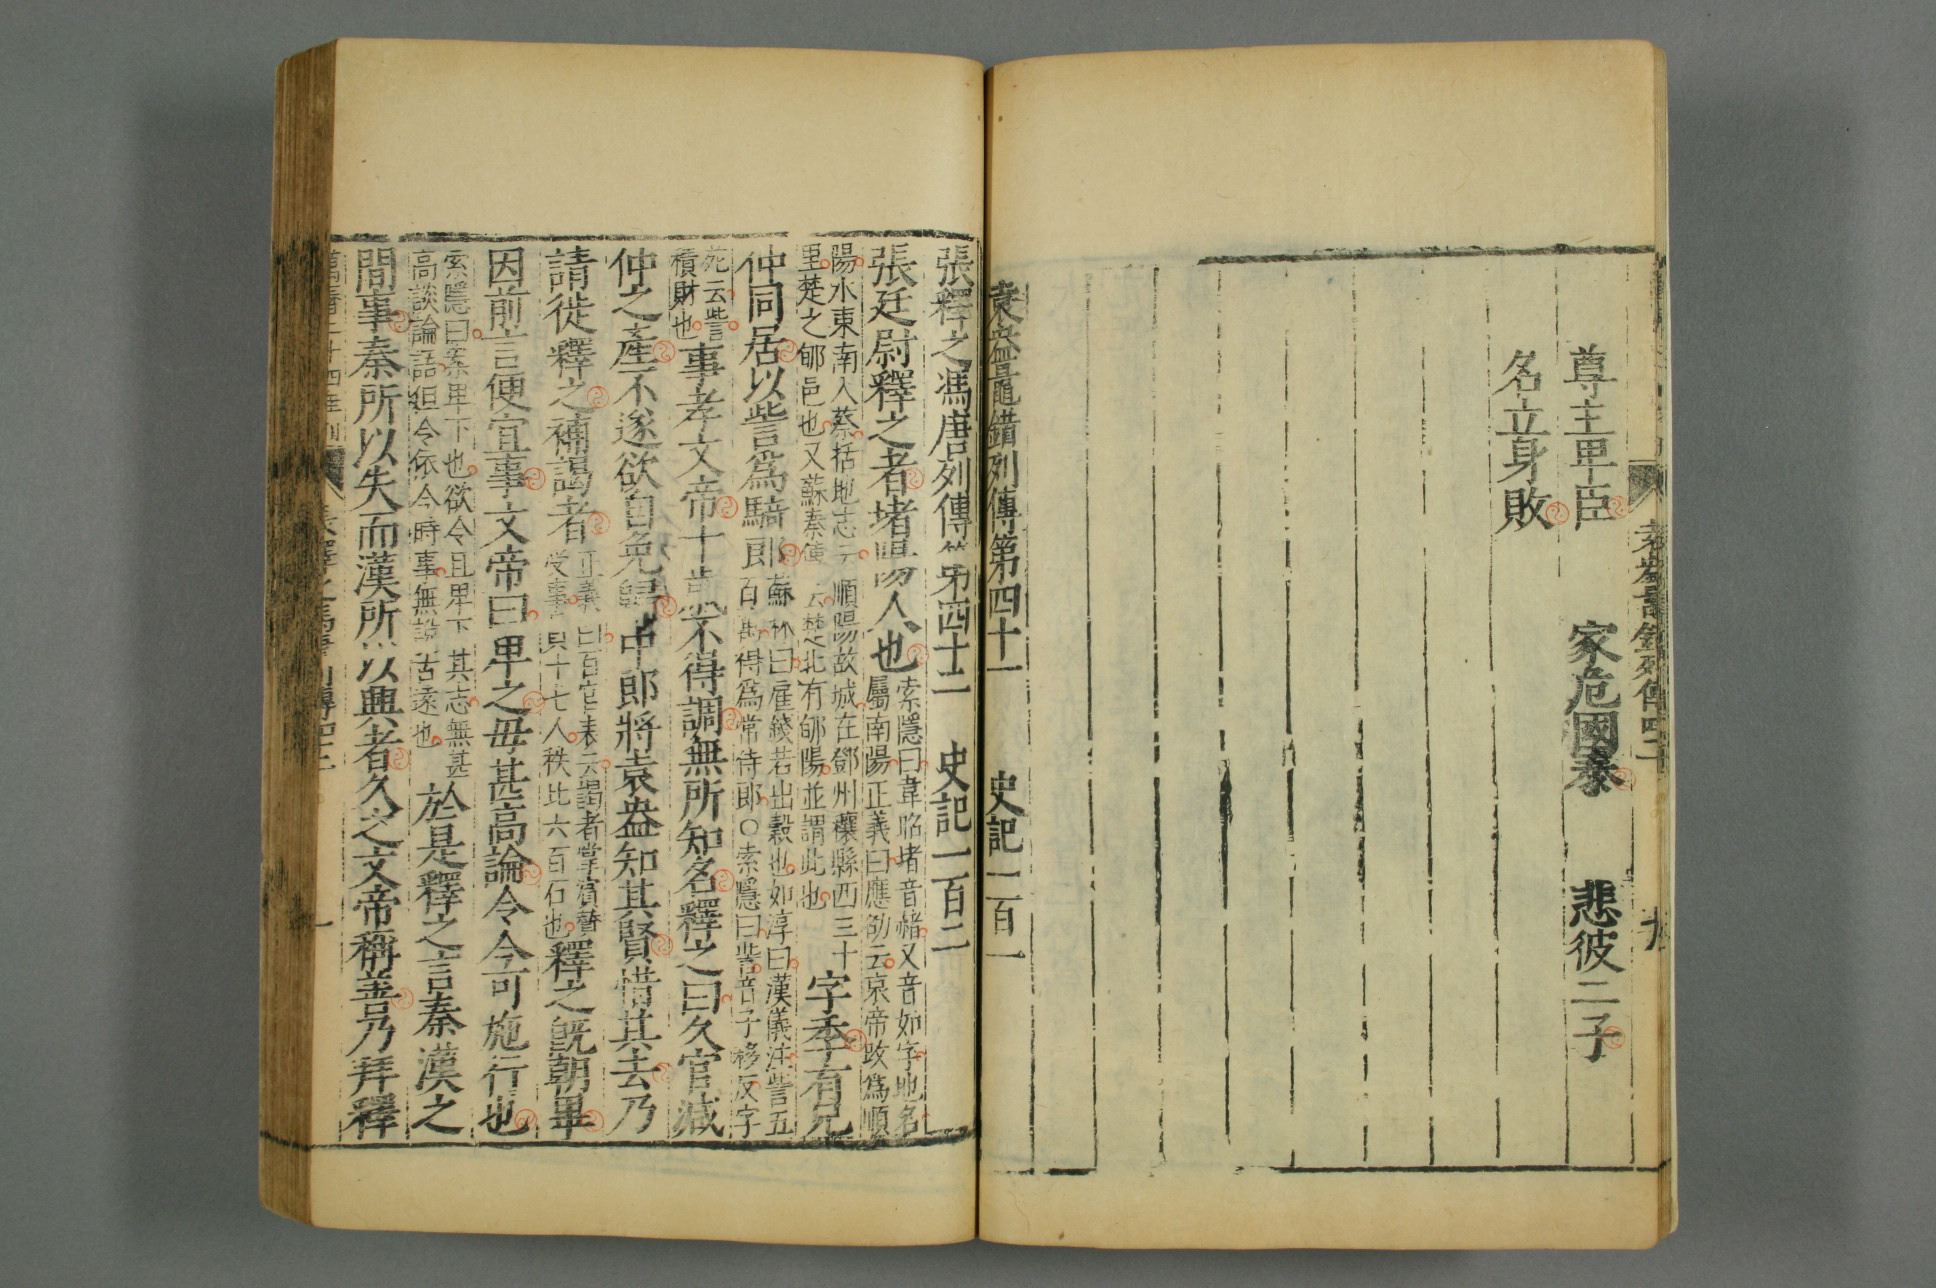 尊主卑臣 家危國泰 悲彼二子
名立身敗
袁盎鼂錯列傳第四十一 史記一百一
張釋之馮唐列傳第四十二 史記一百二
張廷尉釋之者堵陽人也索隱曰韋昭堵音赭又音如字地名
屬南陽正義曰應劭云哀帝改為順
陽水東南入蔡括地志云順陽故城在鄧州穰縣西三十
里楚之郇邑也又蘇秦傳云楚北有郇陽並謂此也字季有兄
仲同居以訾爲騎郎蘇林曰雇錢若出穀也如淳曰漢儀注訾五
百萬得爲常侍郎○索隱曰訾音子移反字
苑云訾
積財也事孝文帝十歲不得調無所知名釋之曰久宦減
仲之產不遂欲自免歸中郎將袁盎知其賢惜其去乃
請徙釋之補謁者正義曰百官表云謁者掌賓贊
受事員十七人秩比六百石也釋之既朝畢
因前言便宜事文帝曰卑之毋甚高論令今可施行也
索隱曰案卑下也欲令且卑下其志無甚
高談論語但令依今時事無說古遠也於是釋之言秦漢之
間事秦所以失而漢所以興者久之文帝稱善乃拜釋